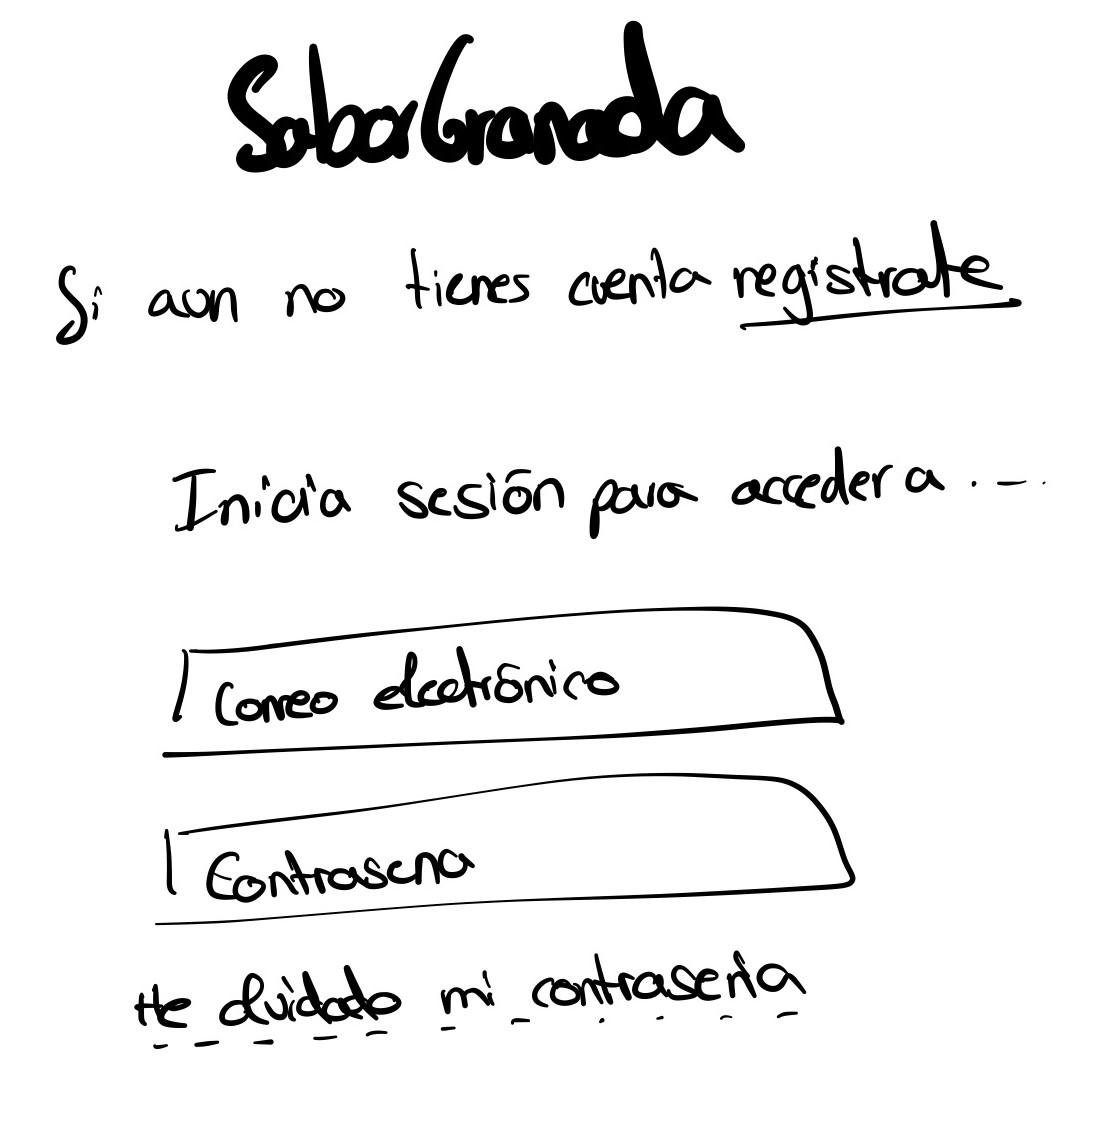 SaborGranada
Si aun no tienes cuenta registrate
Inicia sesión para acceder a ...
Correo electrónico
Contrasena
He olvidado mi contraseña